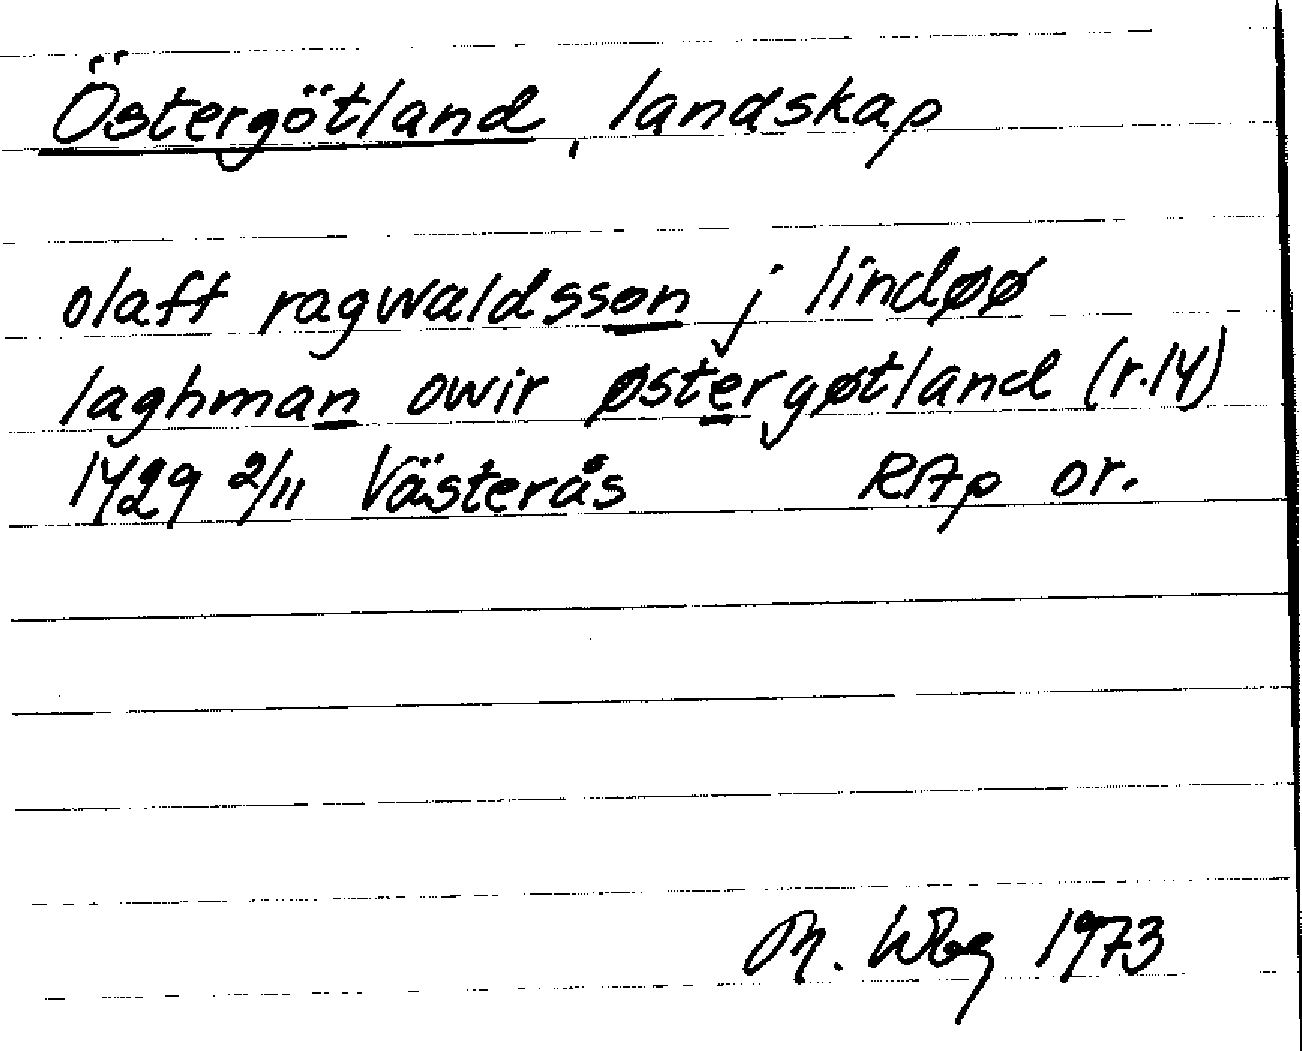 Östergötland, landskap
olaff ragwaldsson j lindøø
laghman owir østergøtland (r.14)
1429 2/11 Västerås RAp or.
Th. Wbg 1973